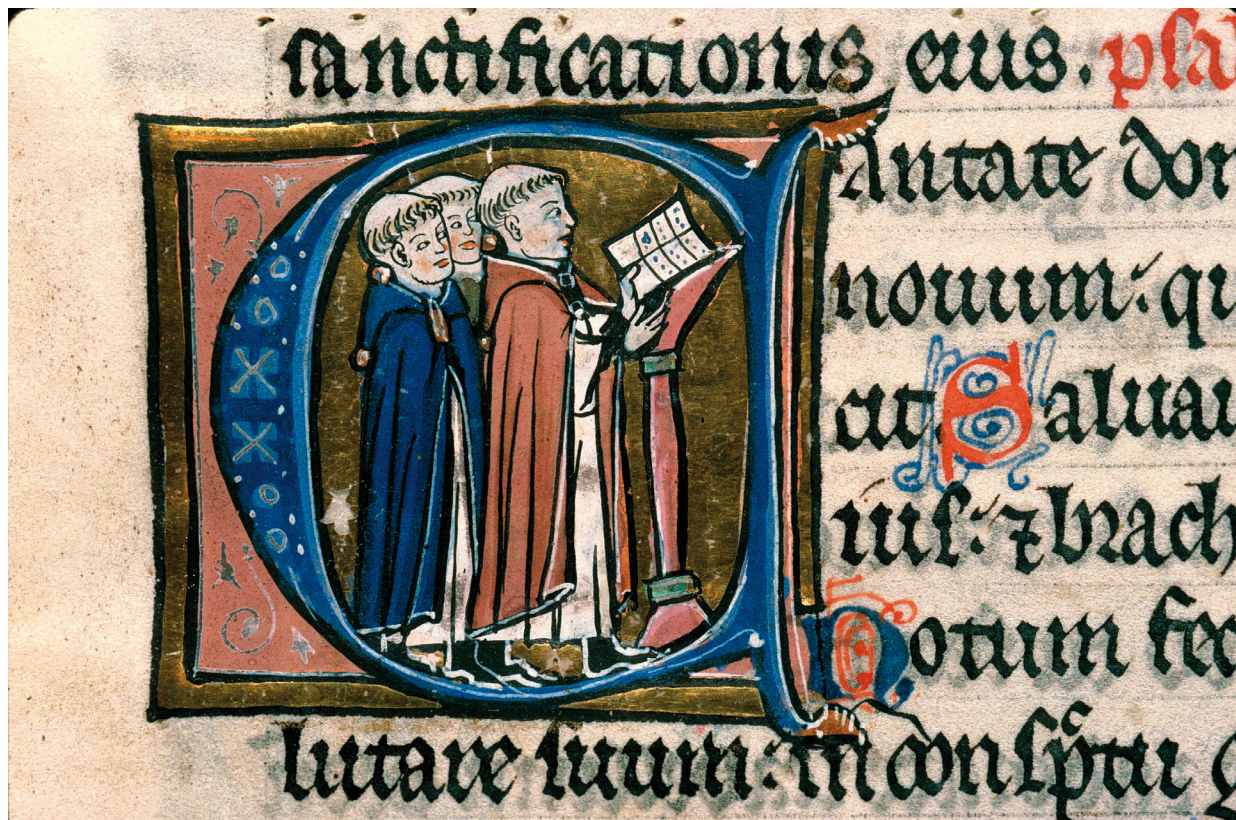 sanctificationis eius. psal
Cantate dom
nouum: qu
cit Saluaui
ius: ⁊ brach
Notum fec
lutare suum: in conspͨtu g